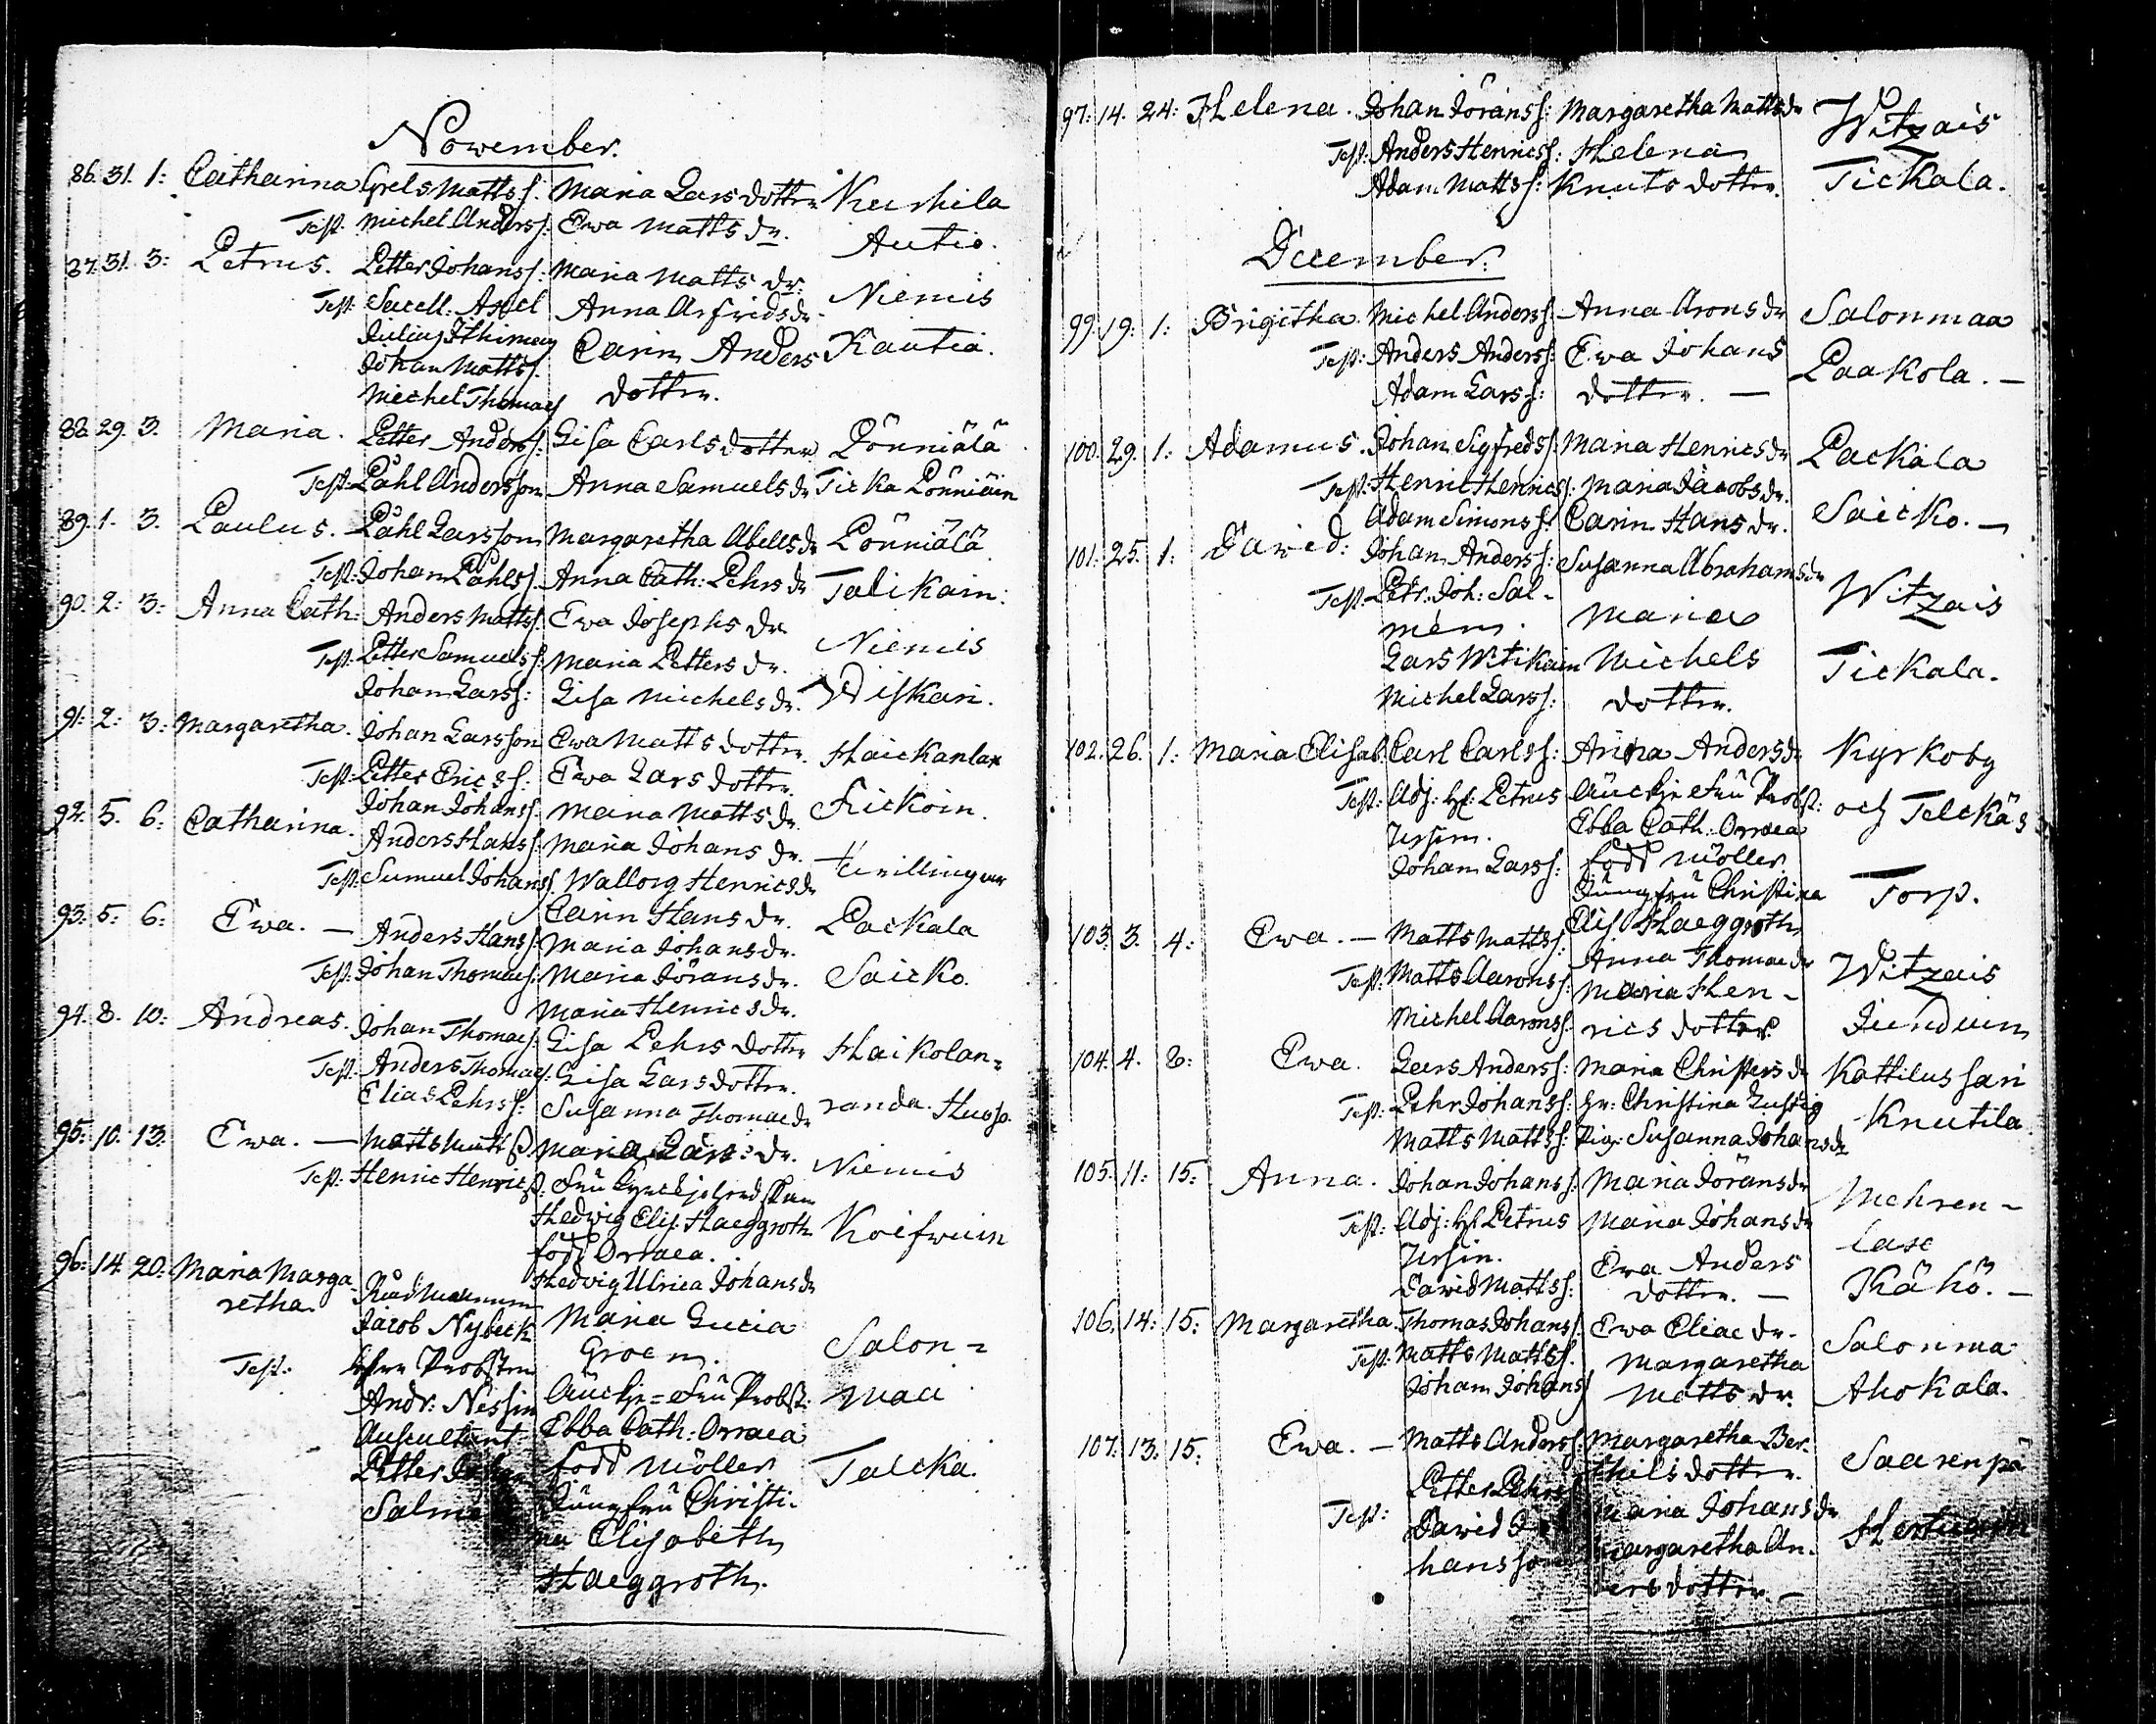 November.
86. 31. 1: Catharina Grels Mattss: Maria Larsdotter Kuihila
Test. Michel Anderss: Ewa Matts dr. Autio.
87. 31. 3: Petrus. Petter Johanss: Maria Matts dr: Niemis
Test: Sacell: Axel Anna Arfridsdr.
Julius Thimen Carin Anders Kautia.
Johan Mattss. dotter.
Michel Thomæs
88. 29. 3. Maria. Petter Anderss: Lisa Carlsdotter Pönniälä
Test: Påhl Andersson Anna Samuelsdr Ticka Pönniäin
89. 1. 3. Paulus. – Påhl Larsson Margaretha Abelsdr Pönniälä
Test: Johan Påhlss. Anna Cath: Pehrsdr Talikain:
90. 2: 3: Anna Cath: Anders Mattss. Ewa Josephs dr. Niemis
Test: Petter Samuelss: Maria Petters dr.
Johan Larss: Lisa Michelsdr. Wiskari.
91: 2: 3: Margaretha. Johan Larsson Ewa Mattsdotter. Haickanlax
Test: Petter Ericss: Ewa Larsdotter.
Johan Johanss: Maria Mattsdr. Fickoin.
92. 5. 6: Catharina. Anders Hanss: Maria Johans dr. twillingar
Test: Samuel Johanss. Wallorg Henricsdr
Carin Hans dr. Packala
93: 5: 6: Ewa. – Anders Hanss: Maria Johansdr.
Test: Johan Thomæs: Maria Jöransdr. Saicko.
Maria Henricsdr.
94. 8. 10: Andreas. Johan Thomæs: Lisa Pehrs dotter Haikolan=
Test: Anders Thomæs: Lisa Larsdotter.
Elias Pehrss: Susanna Thomædr randa. Huoso.
95: 10. 13: Ewa. – Matts Mattss. Maria Lars: dr. Niemis
Test: Henric Henricss: Fru
Hedwig Elis: Haeggroth Koifwuin
född Orraea.
Hedvig Ulrica Johansdr
96: 14. 20: Maria Marga Rådmannen Maria Lucia Salon=
retha. Jacob Nybeck Groen.
Test: Herr Probsten Fru Probst: maa
Andr: Nessin Ebba Cath: Orraea
Auscultant född Möller Talcka.
Petter Johan Jungfru Christi-
Salm na Elisabeth
Haeggroth.
97: 14. 24: Helena. Johan Jöranss: Margaretha Mattsdr Witzais
Test: Anders Henricss: Helena
Adam Mattss: Knuts dotter. Tickala.
December.
99. 19: 1: Brigitha. Michel Anderss. Anna Aronsdr Salonmaa
Test: Anders Anderss: Ewa Johans Paakola. –
Adam Larss: dotter. –
100. 29. 1: Adamus. Johan Sigfredss: Maria Henricsdr Packala
Test: Henric Henricss: Maria Jacobsdr.
Adam Simonss: Carin Hans dr. Saicko. –
101: 25. 1: David: Johan Anderss: Susanna Abrahamsdr Witzais
Test: Petr: Joh: Sal- Maria
men.
Lars Witikain Michels Tickala.
Michel Larss: dotter.
102. 26. 1: Maria Elisab: Carl Carlss: Anna Andersdr Kyrkoby
Test: Adj: Hr: Petrus Fru Probst: och Talckäs
Ursin. Ebba Cath: Orraea
Johan Larss: född Möller Torp.
Jungfru Christina
Elis Haeggroth
103. 3. 4: Ewa. – Matts Mattss: Anna Thomædr Witzais
Test: Matts Aaronss: Maria Hen-
Michel Aaronss. rics dotter. Junduin
104. 4. 8: Ewa. Lars Anderss: Maria Christersdr Kattilussari
Test: Pehr Johanss: Hr: Christina Lustig Knutila
Matts Mattss: Pig: Susanna Johansdr
105. 11: 15: Anna. Johan Johanss: Maria Jöransdr Mehren-
Test: Adj: Hr Petrus Maria Johansdr laxe
Ursin. Ewa Anders
David Mattss: dotter. – Kähö. –
106. 14: 15: Margaretha. Thomas Johanss. Ewa Eliae dr. Salonma
Test: Matts Mattss. Margaretha
Johan Johanss Matts dr. Ahokala.
107. 13: 15: Ewa. – Matts Anderss: Margaretha Ber- Saarenpä
Petter Pehrss thils dotter.
Test: David Jo Maria Johansdr
hansson Margaretha An-
ders dotter. –